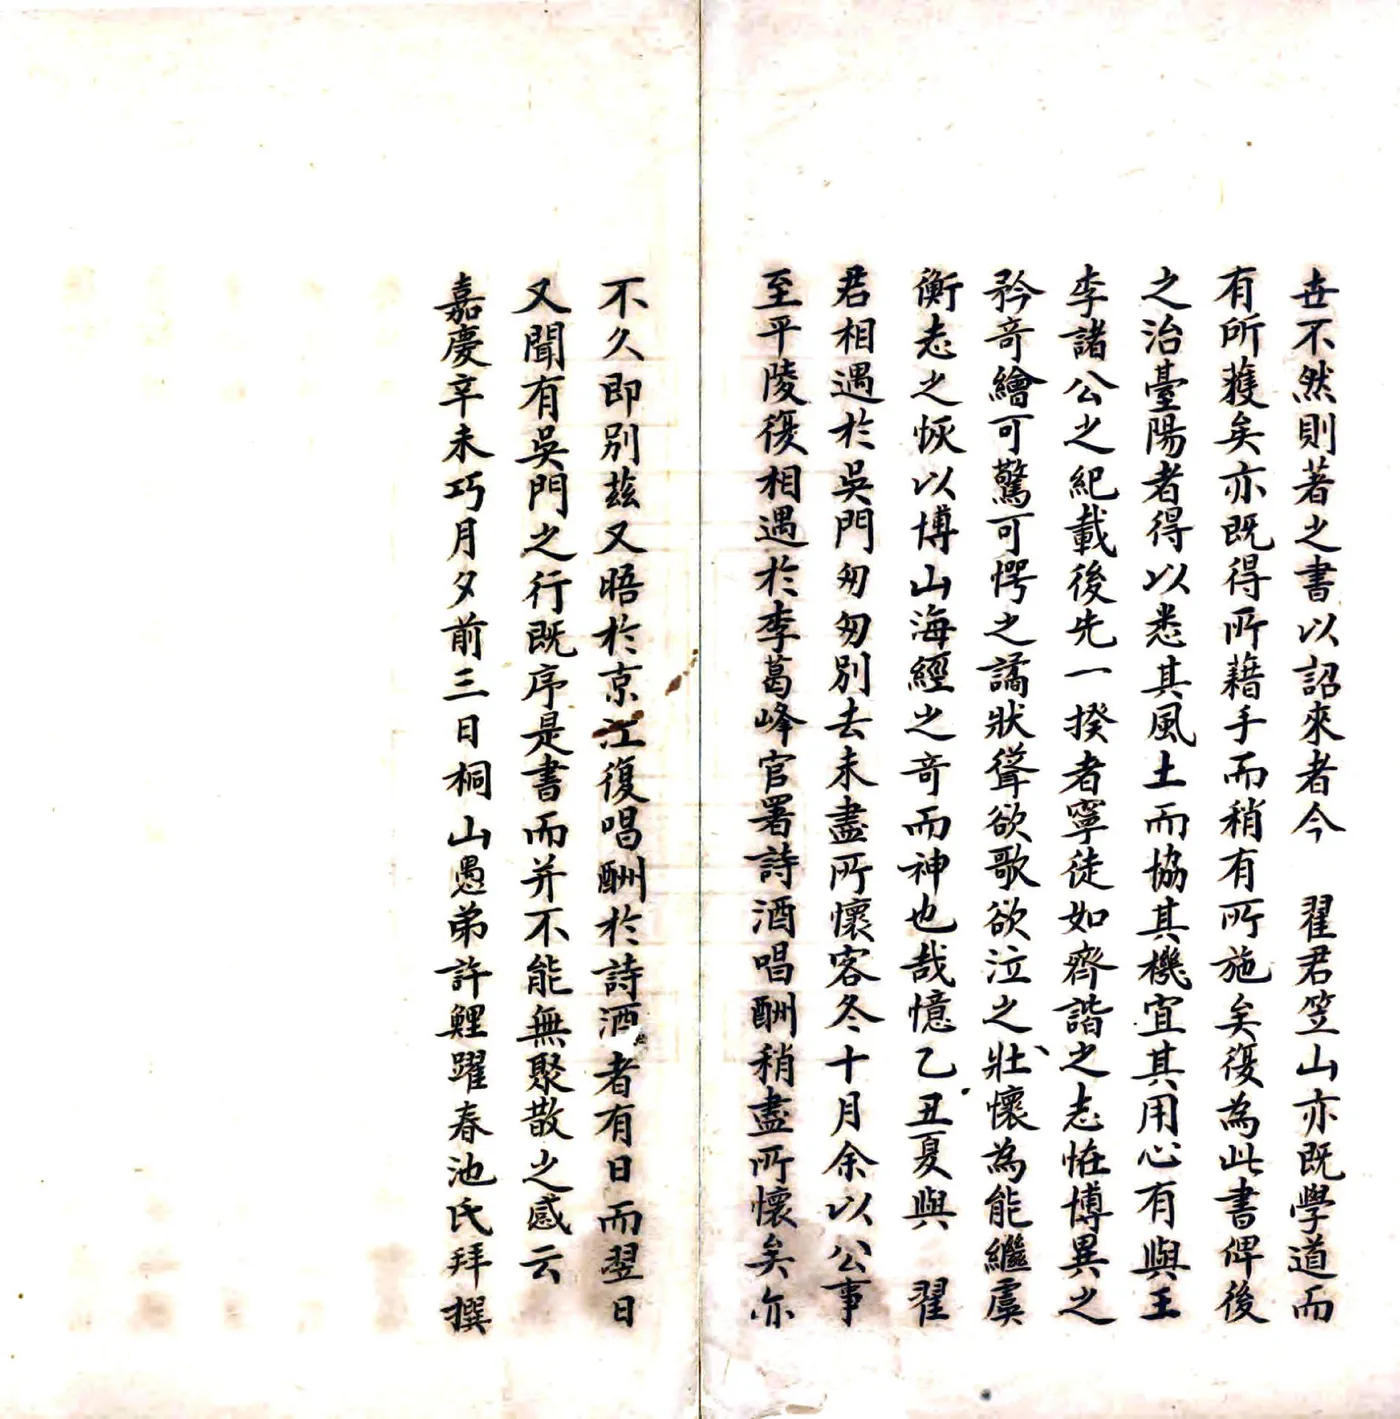 世不然則著之書以詔來者今　翟君笠山亦既學道而
有所獲矣亦既得所藉手而稍有所施矣復為此書俾後
之治臺陽者得以悉其風土而協其機宜其用心有與王
李諸公之紀載後先一揆者寧徒如齊諧之志恠博異之
矜奇繪可驚可愕之譎狀聳欲歌欲泣之壯懷為能繼虞
衡志之恢以博山海經之奇而神也哉憶乙丑夏與　翟
君相遇於吳門匆匆別去未盡所懷客冬十月余以公事
至平陵復相遇於李葛峰官署詩酒唱酬稍盡所懷矣亦
不久即別茲又晤於京江復唱酬於詩酒者有日而翌日
又聞有吳門之行既序是書而并不能無聚散之感云
嘉慶辛未巧月夕前三日桐山愚弟許鯉躍春池氏拜撰